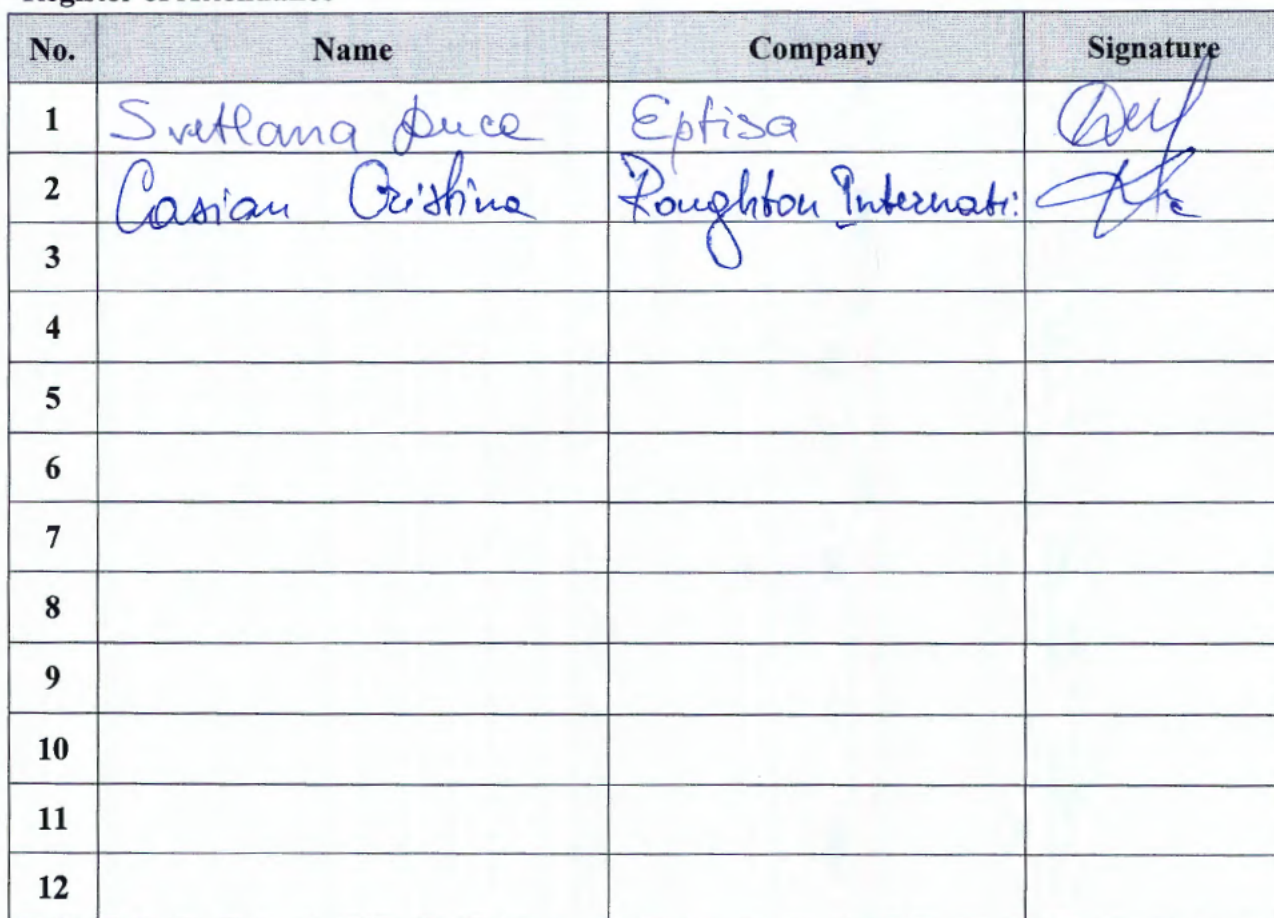 No. Name Company Signature
1 Svetlana Duca Eptisa
2 Casian Cristina Roughton Internati:
3
4
5
6
7
8
9
10
11
12